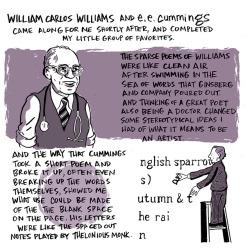 WILLIAM CARLOS WILLIAMS AND e.e. cummings
CAME ALONG FOR ME SHORTLY AFTER, AND COMPLETED
MY LITTLE GROUP OF FAVORITES.
THE SPARSE POEMS OF WILLIAMS
WERE LIKE CLEAN AIR
AFTER SWIMMING IN THE
SEA OF WORDS THAT GINSBERG
AND COMPANY POURED OUT
AND THINKING OF A GREAT POET
ALSO BEING A DOCTOR CHANGED
SOME STEREOTYPICAL IDEAS I
HAD OF WHAT IT MEANS TO BE
AN ARTIST.
AND THE WAY THAT CUMMINGS
TOOK A SHORT POEM AND
BROKE IT UP, OFTEN EVEN
BREAKING UP THE WORDS
THEMSELVES, SHOWED ME
WHAT USE COULD BE MADE
OF THE BLANK SPACE
ON THE PAGE. HIS LETTERS
WERE LIKE THE SPACED OUT
NOTES PLAYED BY THELONIOUS MONK.
nglish sparro
s)
utumn & t
he rai
n